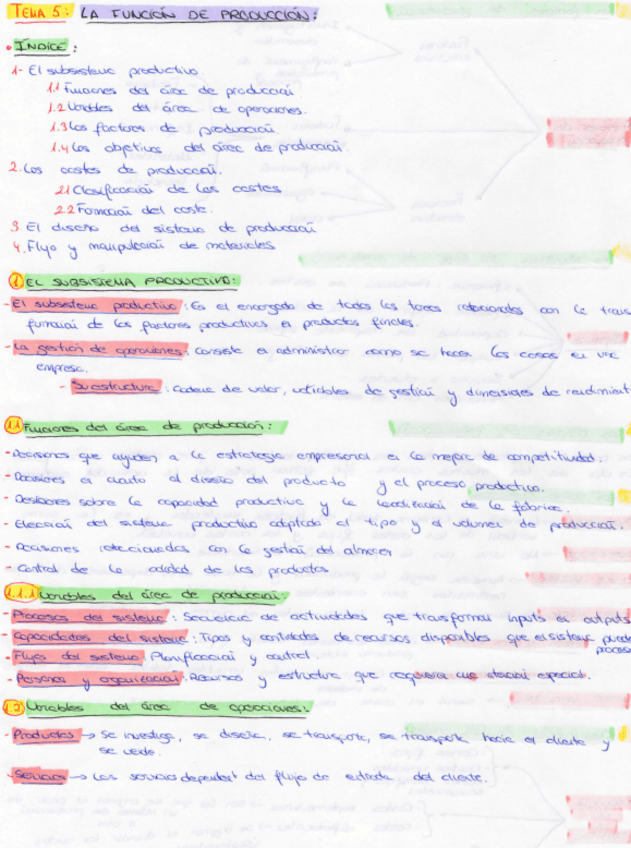 TEMA 5: LA FUNCIÓN DE PRODUCCIÓN:
• ÍNDICE:
1- El subsistema productivo.
1.1 Funciones del área de producción
1.2 Variables del área de operaciones.
1.3 Los factores de producción.
1.4 Los objetivos del área de producción.
2. Los costes de producción.
2.1 Clasificación de los costes
2.2 Formación del coste.
3 El diseño del sistema de producción
4. Flujo y manipulación de materiales
① EL SUBSISTEMA PRODUCTIVO:
- El subsistema productivo: Es el encargado de todas las tareas relacionadas con la trans
formación de los factores productivos en productos finales.
- La gestión de operaciones: Consiste en administrar como se hacen las cosas en una
empresa.
- Su estructura: Cadena de valor, variables de gestión y dimensiones de rendimient
1.1 Funciones del área de producción:
- Decisiones que ayuden a la estrategia empresarial en la mejora de competitividad.
- Decisiones en cuanto al diseño del producto y el proceso productivo.
- Decisiones sobre la capacidad productiva y la localización de la fábrica.
- Elección del sistema productivo adaptado al tipo y al volumen de producción.
- Decisiones relacionadas con la gestión del almacén
- Control de la calidad de los productos
1.1.1 Variables del área de producción:
- Procesos del sistema: Secuencia de actividades que transforman inputs en outputs
- Capacidades del sistema: Tipos y cantidades de recursos disponibles que el sistema puede
procesa
- Flujos del sistema: Planificación y control
- Personas y organización: Recursos y estructura que requieren una atención especial.
1.2 Variables del área de operaciones:
- Productos → Se investiga, se diseña, se transporta, se transporta hacia el cliente y
se vende.
- Servicios → Los servicios dependen del flujo de entrada del cliente.